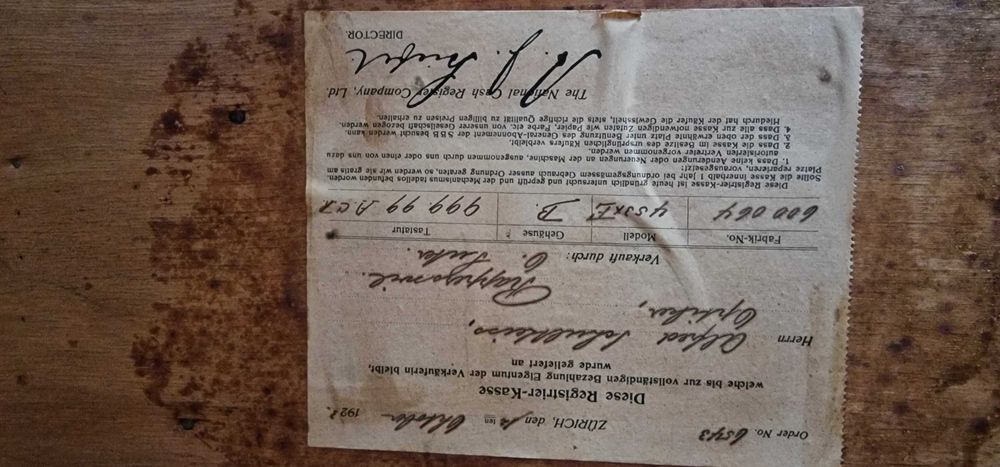 Order No. 6543
ZÜRICH, den ten Oktober 192
Diese Registrier-Kasse
welche bis zur vollständigen Bezahlung Eigentum der Verkäuferin bleibt,
wurde geliefert an
Herrn Alfred
Optiker,
Rapperswil.
Verkauft durch:
Fabrik-No. Modell Gehäuse Tastatur
600064 B. 999.99
Diese Registrier-Kasse ist heute gründlich untersucht und geprüft und der Mechanismus tadellos befunden worden.
Sollte die Kasse innerhalb 1 Jahr bei ordnungsgemässem Gebrauch ausser Ordnung geraten, so werden wir sie gratis am
Platze reparieren, vorausgesetzt:
1. Dass keine Aenderungen oder Neuerungen an der Maschine, ausgenommen durch uns oder einen von uns dazu
autorisierten Vertreter vorgenommen werden.
2. Dass die Kasse im Besitze des ursprünglichen Käufers verbleibt.
3. Dass der oben erwähnte Platz unter Benützung des General-Abonnement der SBB besucht werden kann.
4. Dass alle zur Kasse notwendigen Zutaten wie Papier, Farbe etc. von unserer Gesellschaft bezogen werden.
Hiedurch hat der Käufer die Gewissheit, stets die richtige Qualität zu billigen Preisen zu erhalten.
The National Cash Register Company, Ltd.
DIRECTOR.